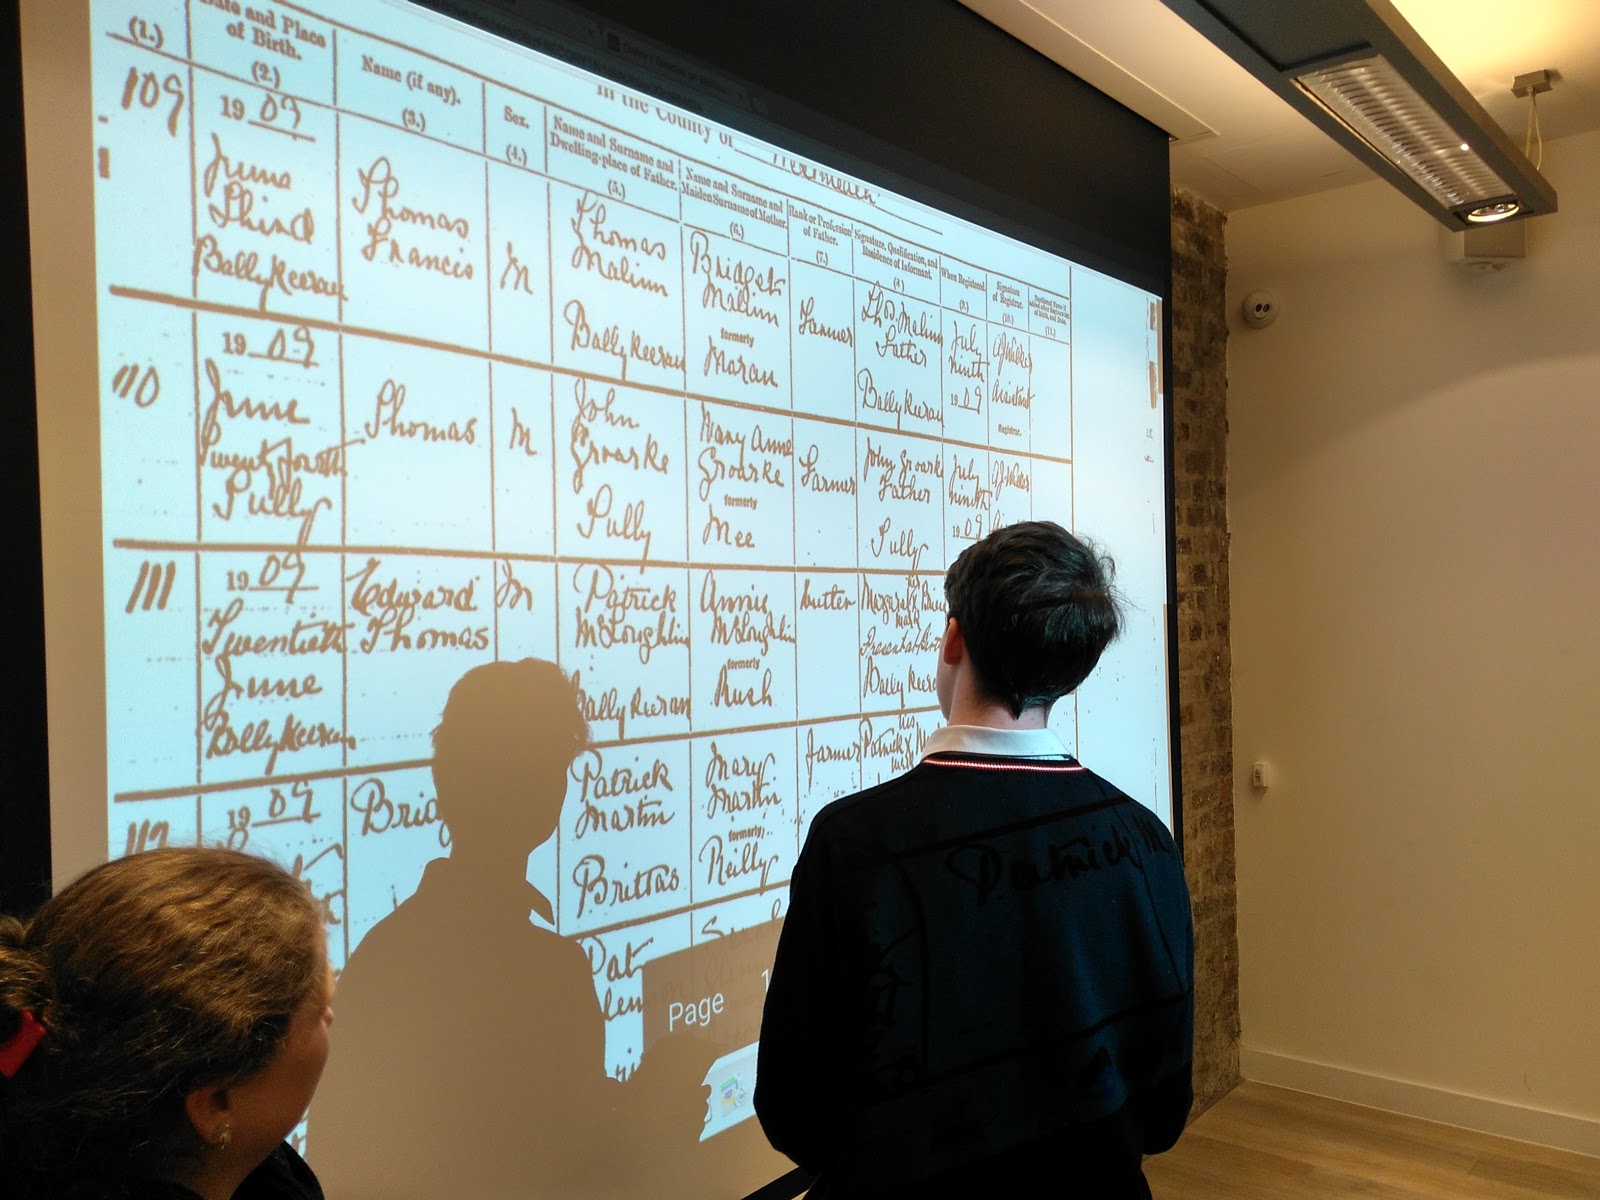 In the County of
(1.)
Date and Place of Birth. (2.)
Name (if any). (3.)
Sex. (4.)
Name and Surname and Dwelling-place of Father. (5.)
Name and Surname and Maiden Surname of Mother. (6.)
Rank or Profession of Father. (7.)
Signature, Qualification, and Residence of Informant.
When Registered. (9.)
Signature of Registrar. (10.)
(11.)
109
1909 June Third Ballykeeran
Thomas Francis
M
Thomas Malinn Ballykeeran
Bridget Malinn formerly Moran
Farmer
Malinn Father Ballykeeran
July ninth 1909
Assistant Registrar.
110
1909 June Twenty fourth Tully
Thomas
M
John Groarke Tully
Mary Anne Groarke formerly Mee
Farmer
John Groarke Father Tully
July ninth 1909
111
1909 Twentieth June Ballykeeran
Edward Thomas
M
Patrick McLoughlin Ballykeeran
Annie McLoughlin formerly Rush
Margaret mark
112
1909
Brid
Patrick Martin Brittas
Mary Martin formerly Reilly
Farmer
Patrick x his mark
Pat
Page 1
Patrick M